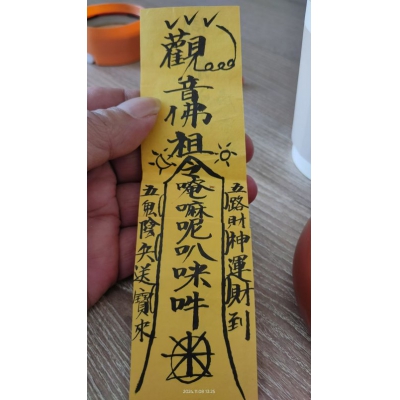 觀音佛祖令
唵嘛呢叭咪吽
五路財神運財到
五鬼陰兵送寶來